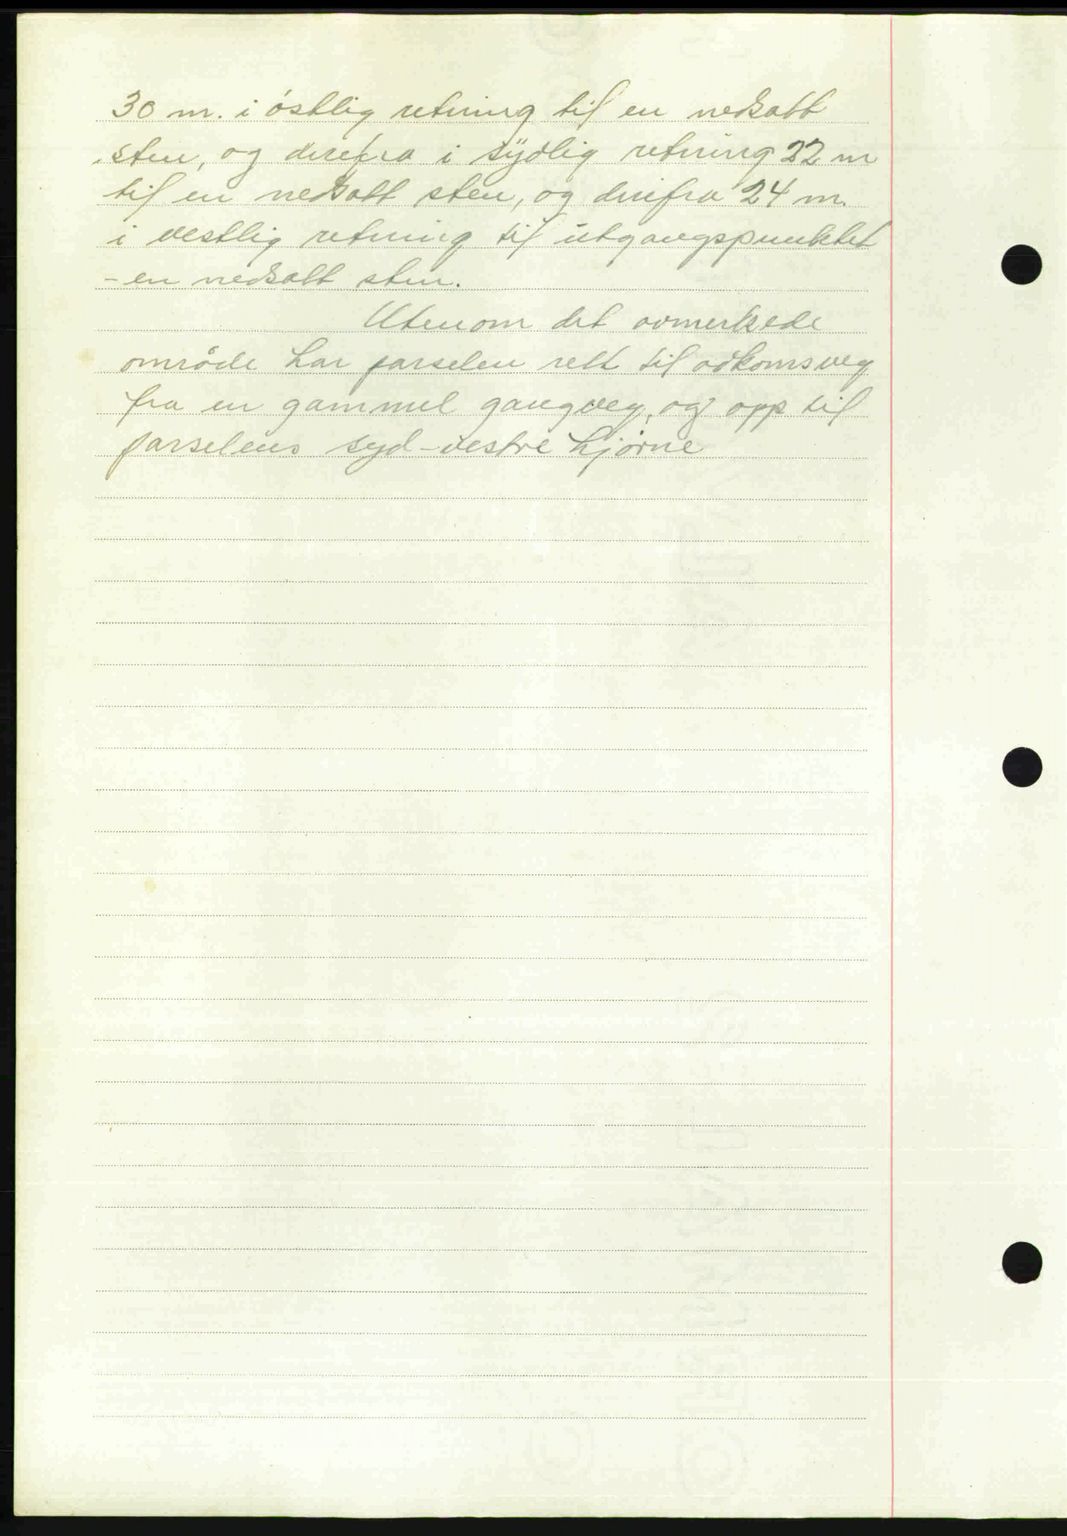 30 m. i østlig retning til en nedsatt
sten, og derifra i sydlig retning 22 m
til en nedsatt sten, og derifra 24 m.
i vestlig retning til utgangspunktet
- en nedsatt sten.
Utenom det avmerkede
område har parselen rett til adkomsveg
fra en gammel gangveg, og opp til
parselens syd-vestre hjørne